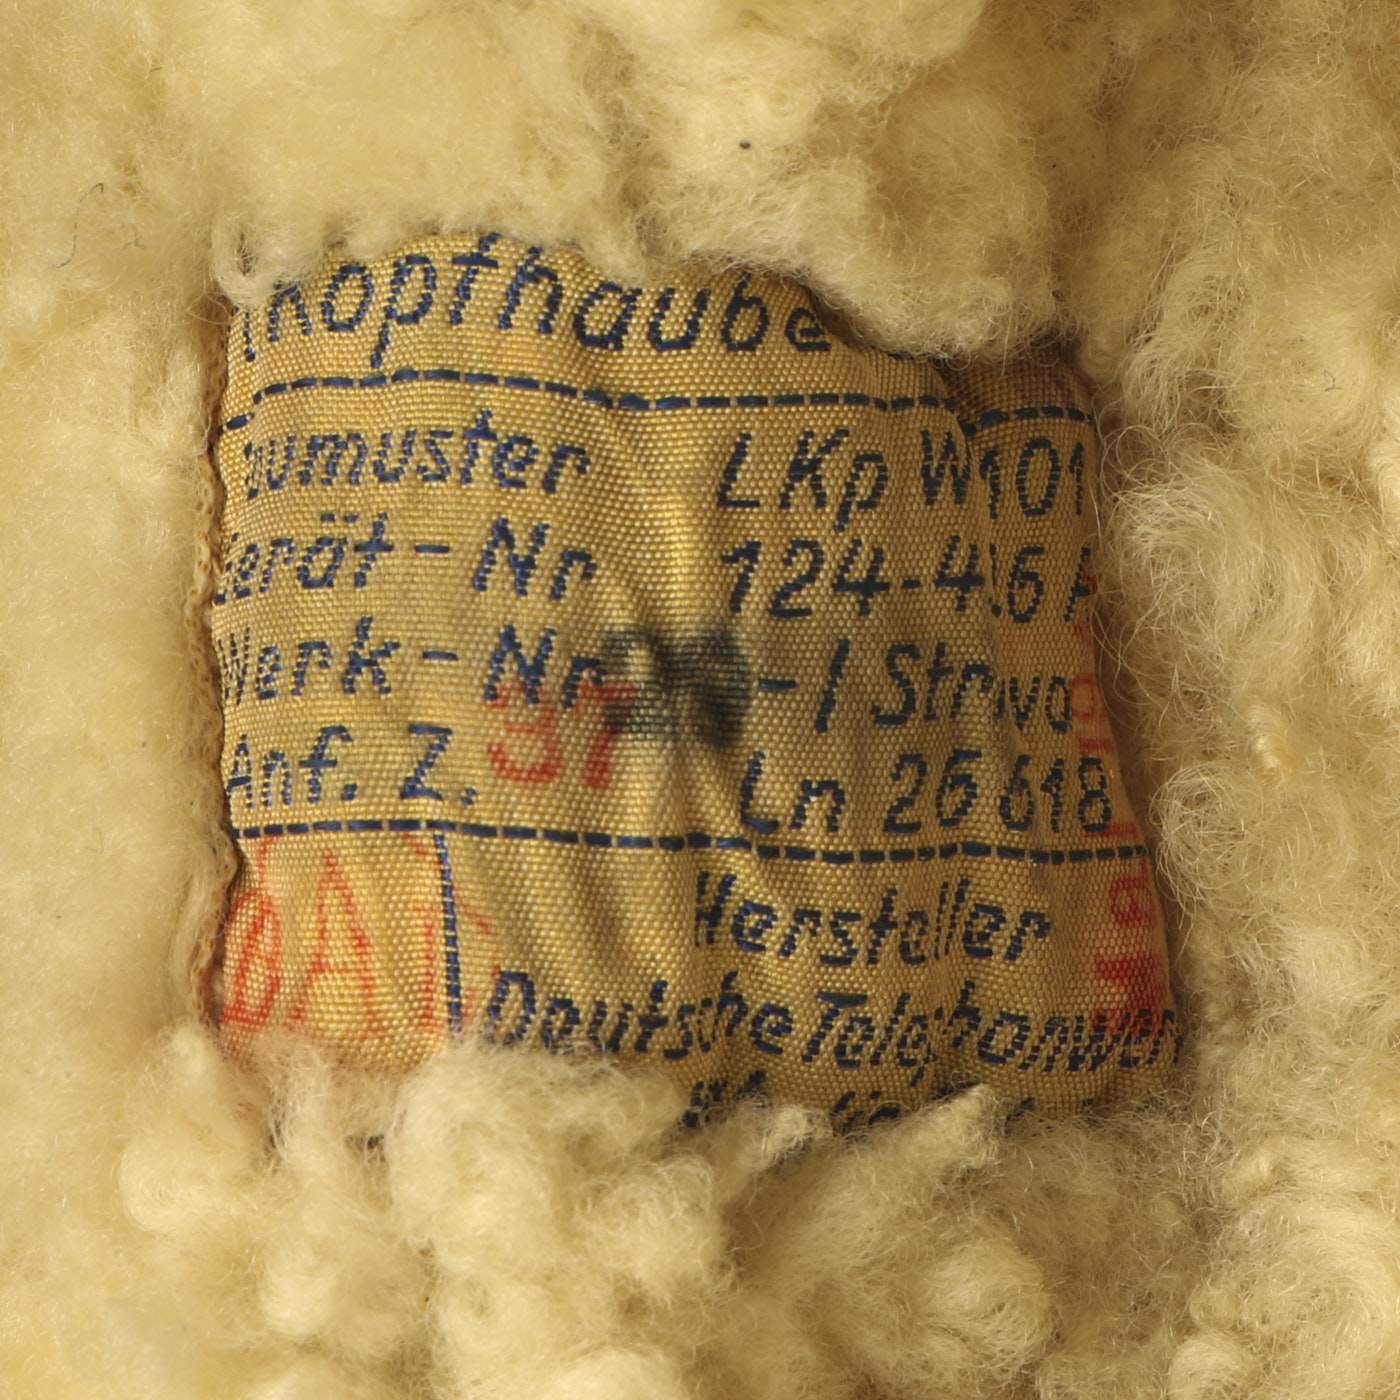 Kopfhaube
zumuster LKp W101
erät-Nr 124-4
Werk-Nr -/Str
37
Anf. Z. Ln 26618
BAL
Hersteller
Deutsche Telephonwer